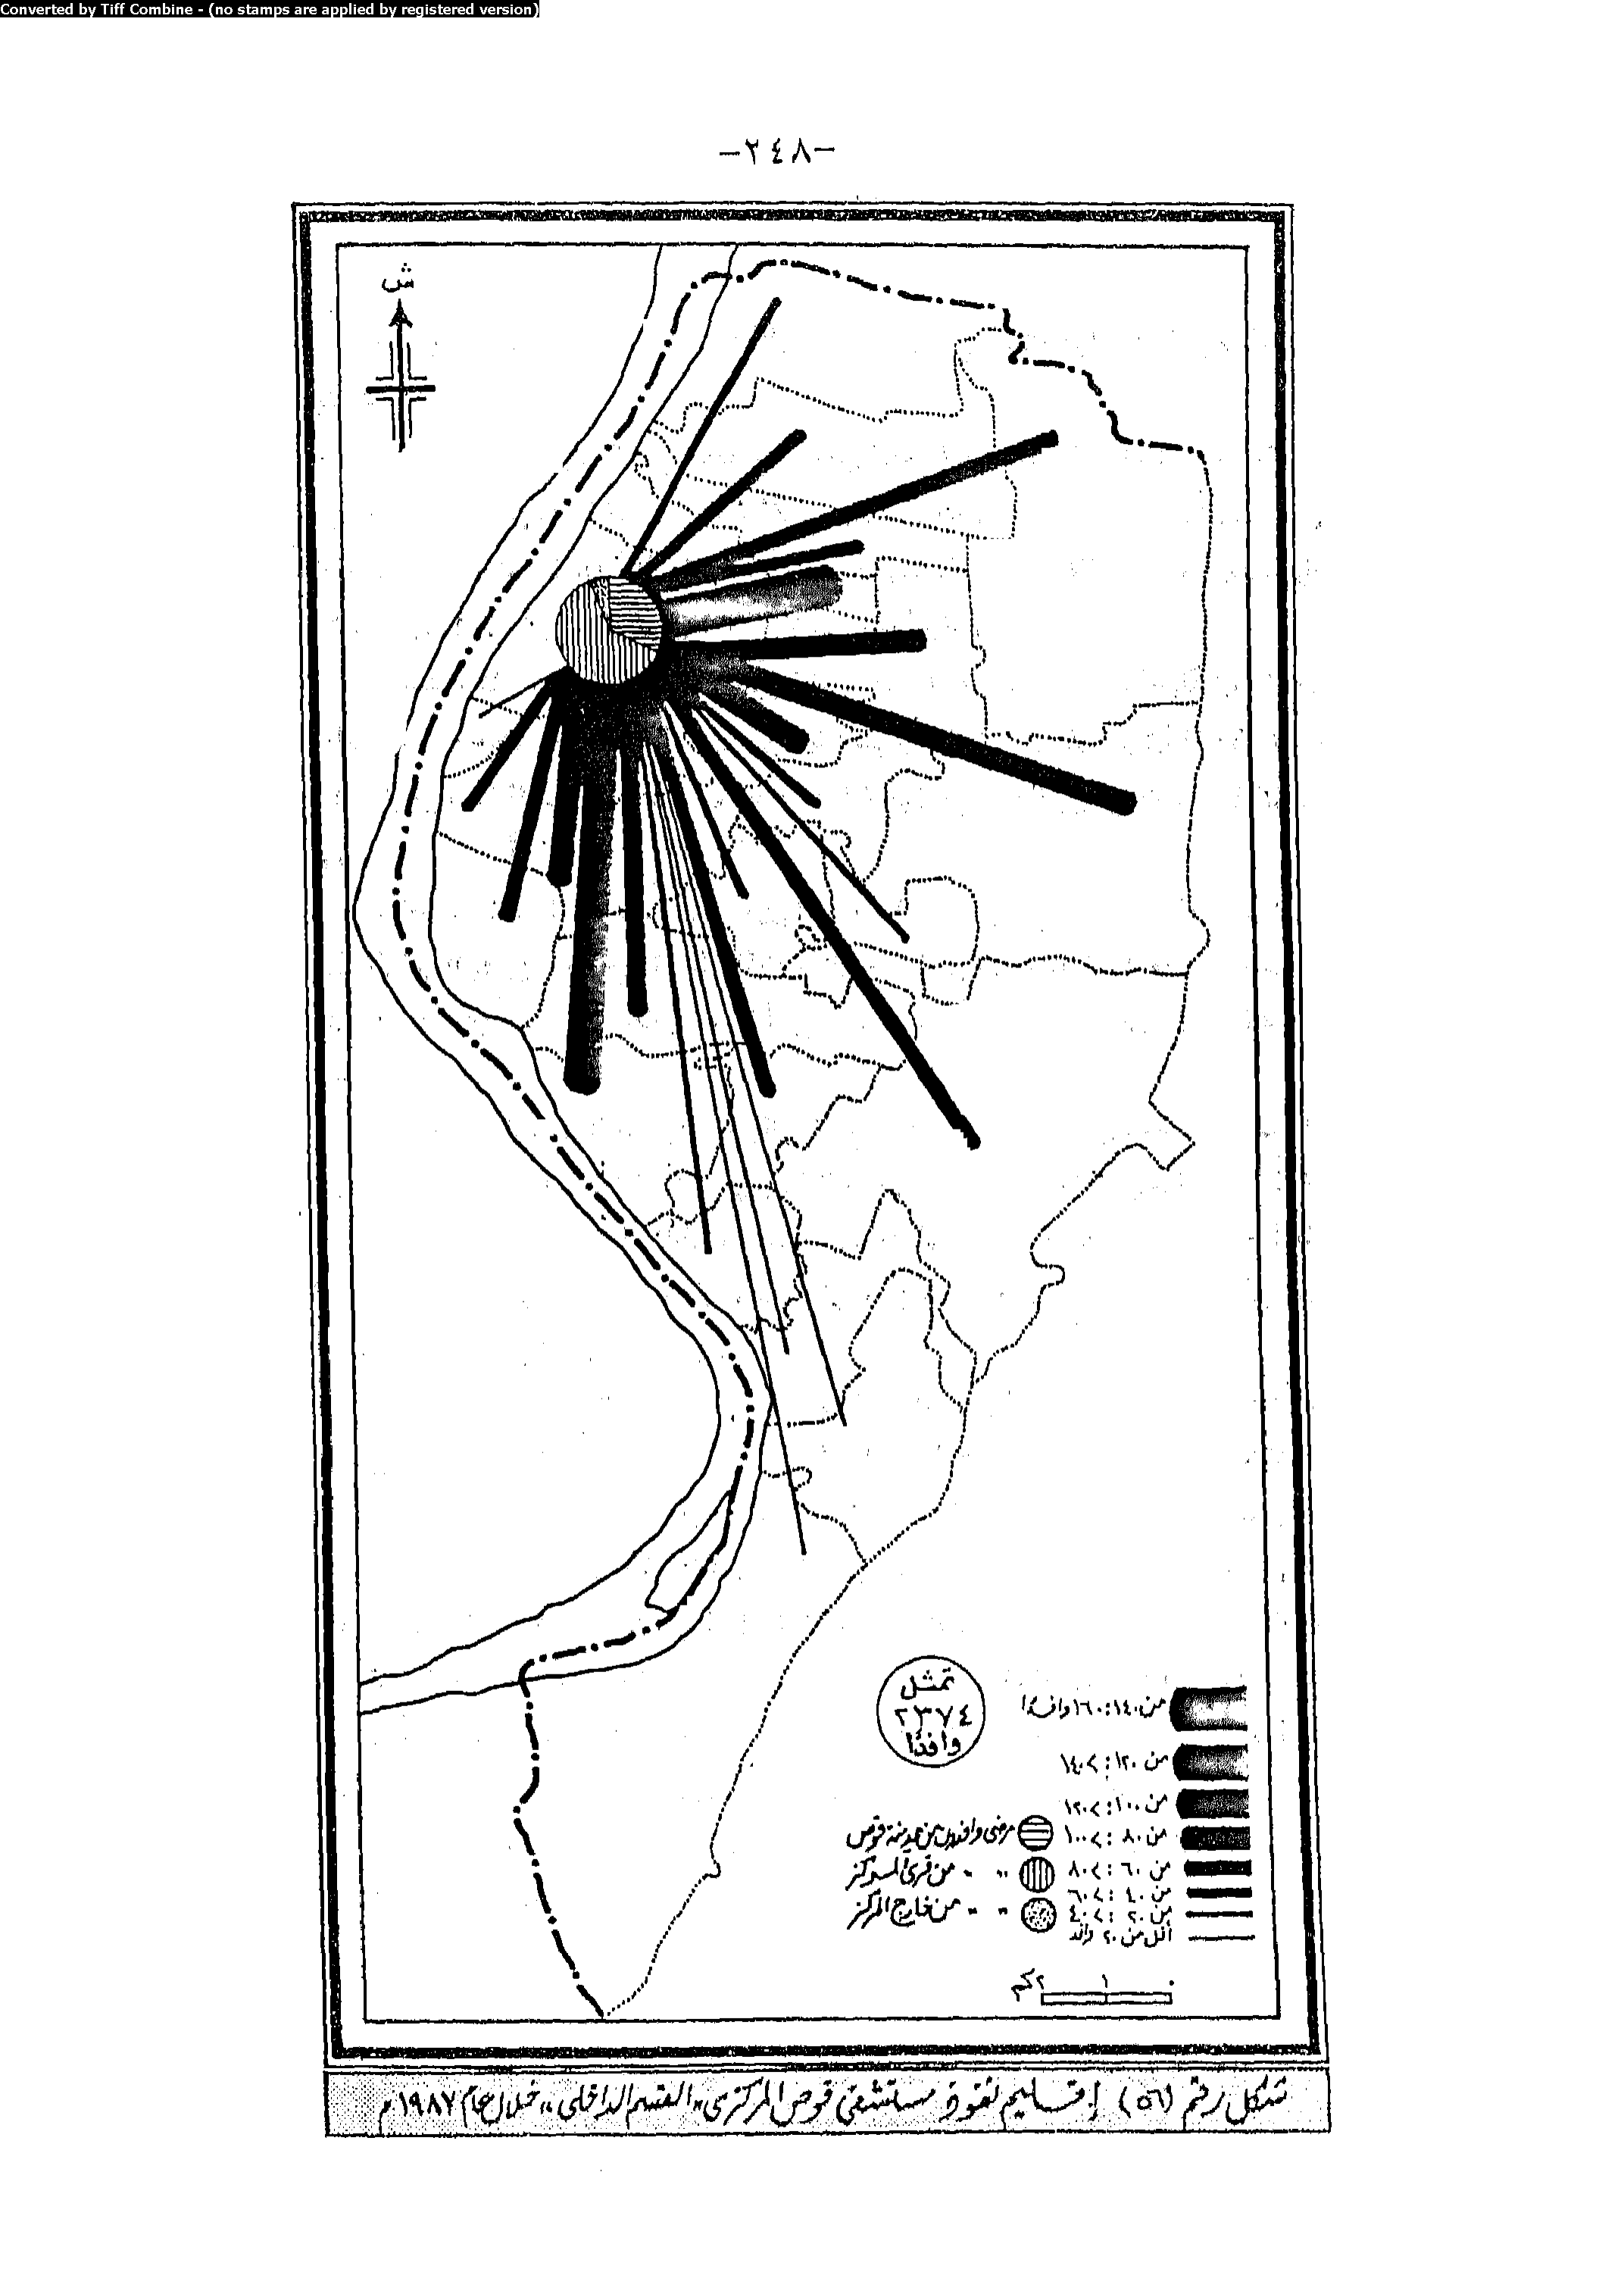 Converted by Tiff Combine - (no stamps are applied by registered version)
-٢٤٨-
ش
تمثل
٢٣٧٤
وافدًا
من ١٤٠ : ١٦٠ وافدًا
من ١٢٠ : > ١٤٠
من ١٠٠ : > ١٢٠
من ٨٠ : > ١٠٠
من ٦٠ : > ٨٠
من ٤٠ : > ٦٠
من ٢٠ : > ٤٠
أقل من ٢٠ وافد
مرضى وافدون من مدينة قوص
" " من قرى المركز
" " من خارج المركز
٠ ١ ٢ كم
شكل رقم (٥٦) إقليم نفوذ مستشفى قوص المركزى "القسم الداخلى" خلال عام ١٩٨٧ م